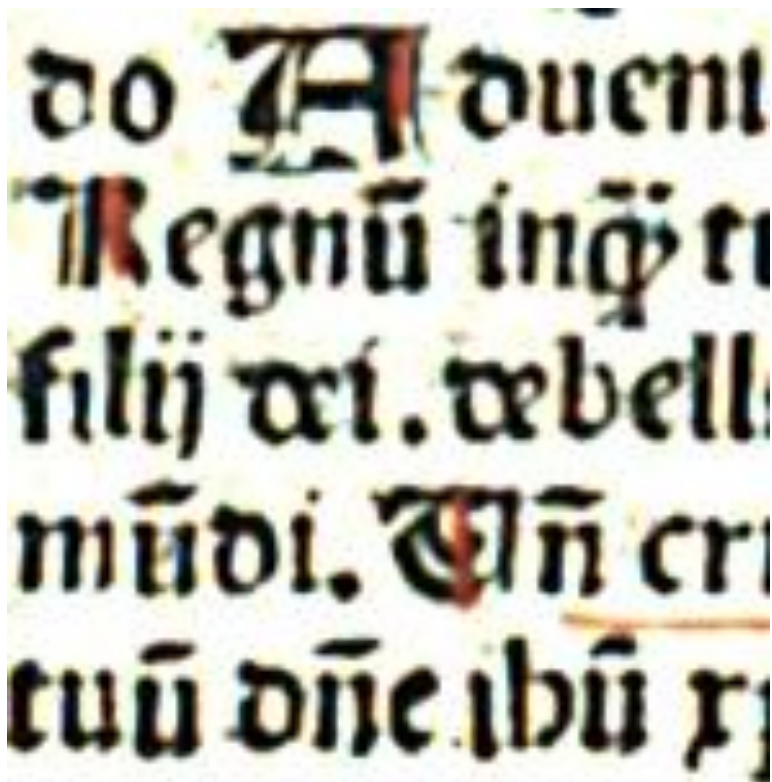 do Aduent
Regnū inq̄ tu
filij dei. debell
mūdi. Vn̄ cr
tuū dn̄e ihū xp